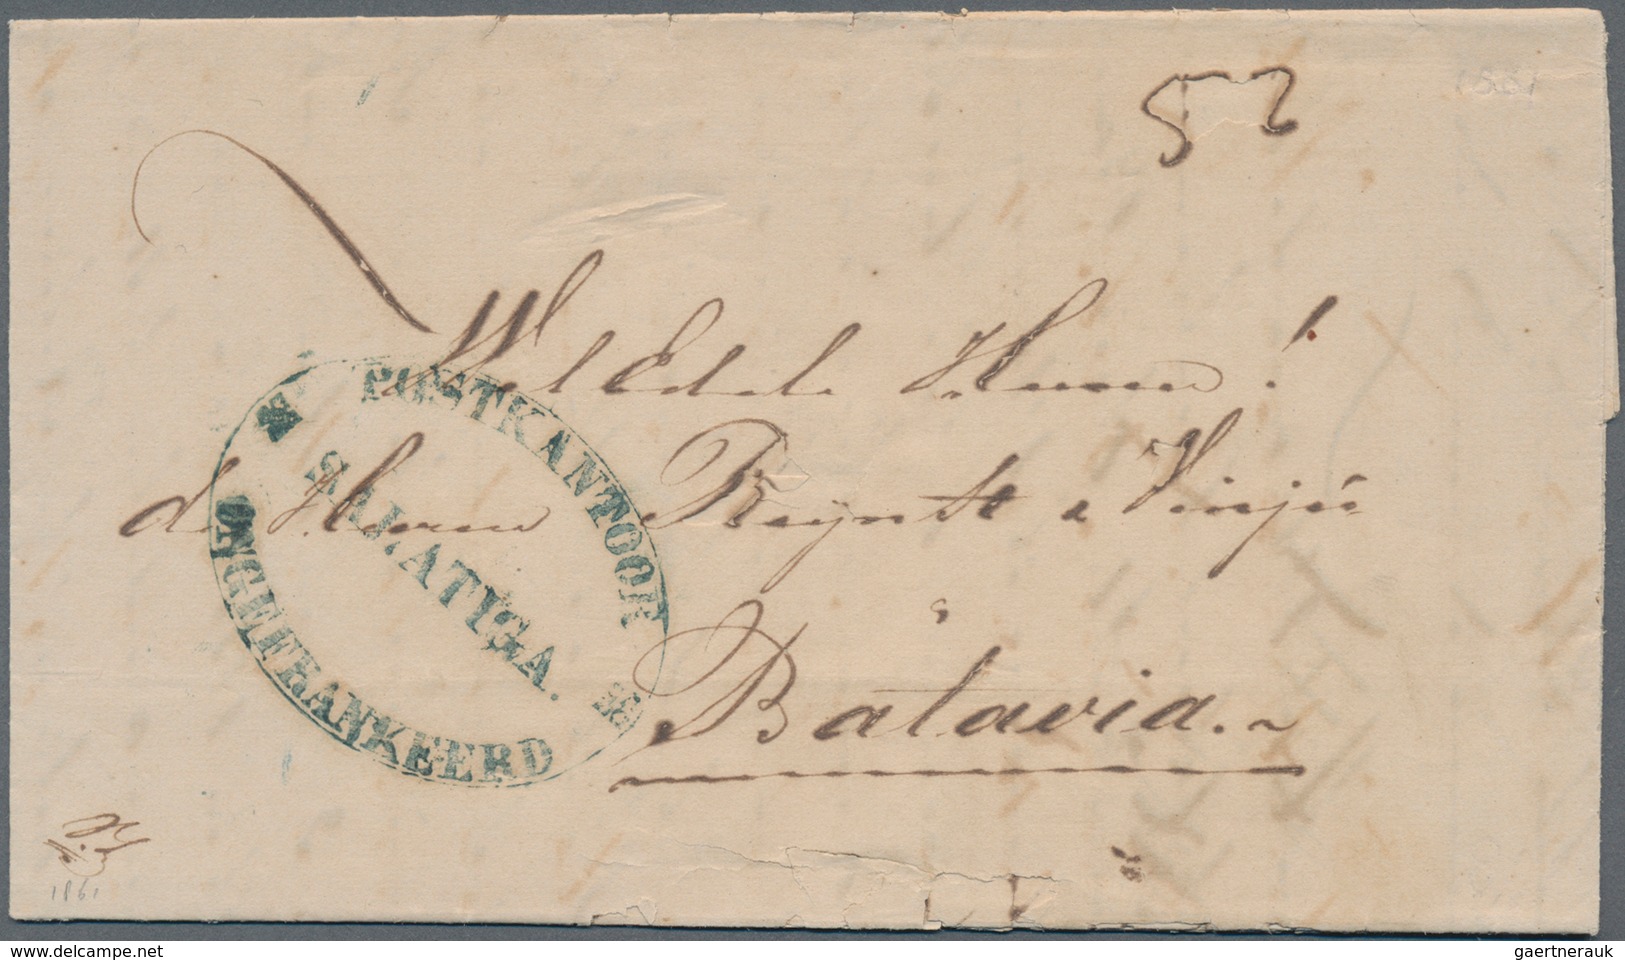 52
1861
Wel Edele Heeren!
de Heeren Reynst & Vinju
Batavia. ~
POSTKANTOOR
SALATIGA.
ONGEFRANKEERD
1861
delcampe.net
gaertnerauk